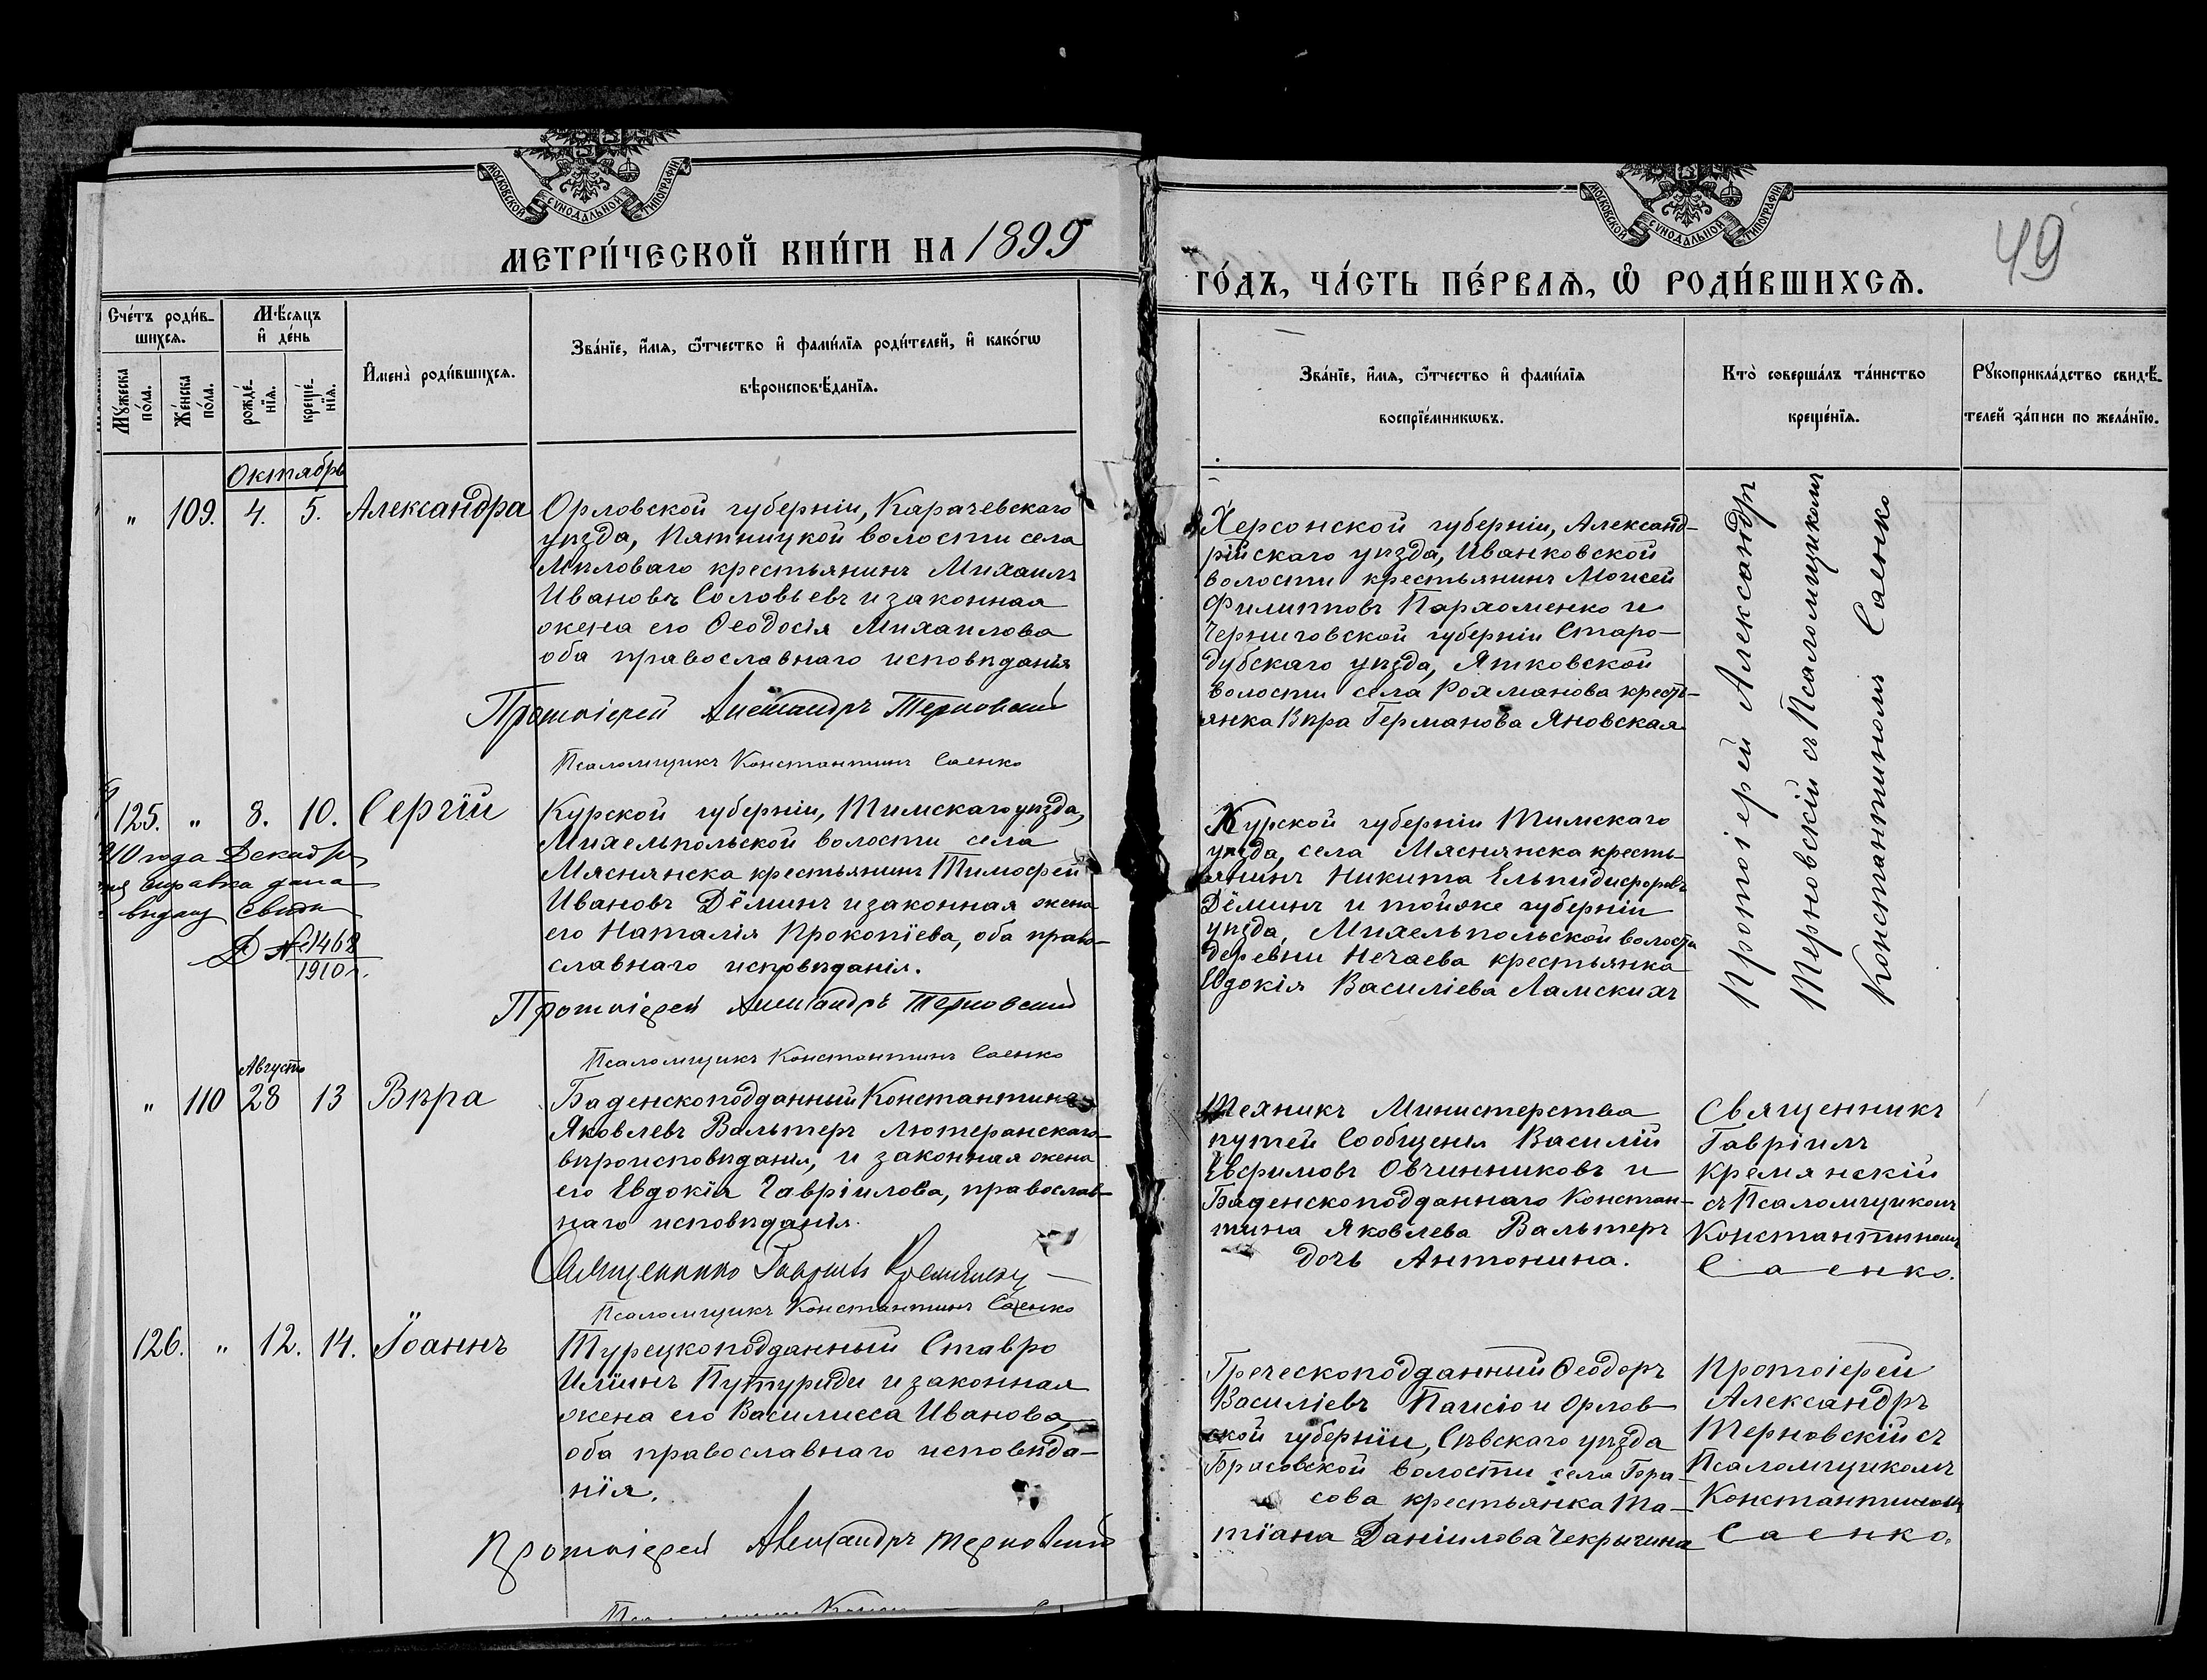 МОСКОВСКОЙ СѴНОДАЛЬНОЙ ТИПОГРАФІИ
МЕТРИ́ЧЕСКОЙ КНИ́ГИ НА 1899
Сче́тъ роди́в-
шихся.
Му́жеска по́ла.
Же́нска по́ла.
Мѣ́сяцъ
и҆ де́нь
рожде́-
нїя.
креще́-
нїя.
И҆мена̀ роди́вшихся.
Зва́нїе, и҆́мя, ѻ҆́тчество и҆ фами́лїя роди́телей, и҆ како́гѡ
вѣроисповѣ́данїя.
Октябрь
" 109. 4. 5. Александра
Орловской губерніи, Карачевскаго
уѣзда, Пятницкой волости села
Милова​го крестьянинъ Михаилъ
Ивановъ Соловьевъ и законная
жена его Ѳеодосія Михаилова
оба православнаго исповѣданія
Протоіерей Александръ Терновскій
Псаломщикъ Константинъ Саенко
125. " 8. 10. Сергій
10 года Декабр
справка дана
выдачу свид
Д № 1468
1910 г.
Курской губерніи, Тимскаго уѣзда,
Михельпольской волости села
Мяснянска крестьянинъ Тимофей
Ивановъ Дёминъ и законная жена
его Наталія Прокопіева, оба право-
славнаго исповѣданія.
Протоіерей Александръ Терновскій
Псаломщикъ Константинъ Саенко
Августъ
" 110 28 13 Вѣра
Баденскоподданный Константинъ
Яковлевъ Вальтеръ лютеранскаго
вѣроисповѣданія, и законная жена
его Евдокія Гавріилова, православ-
наго исповѣданія.
Священникъ Гавріилъ Кремянскій
Псаломщикъ Константинъ Саенко
126. " 12. 14. Іоаннъ
Турецкоподданный Ставро
Иліинъ Путуриди и законная
жена его Василисса Иванова,
оба православнаго исповѣда-
нія.
Протоіерей Александръ Терновскій
МОСКОВСКОЙ СѴНОДАЛЬНОЙ ТИПОГРАФІИ
49
ГО́ДЪ, ЧА́СТЬ ПЕ́РВАЯ, Ѡ҆ РОДИ́ВШИХСЯ.
Зва́нїе, и҆́мя, ѻ҆́тчество и҆ фами́лїя
воспрїе́мникѡвъ.
Кто̀ соверша́лъ та́инство
креще́нїя.
Рꙋкоприкла́дство свидѣ́-
телей за́писи по жела́нїю.
Херсонской губерніи, Александ-
рійскаго уѣзда, Иванковской
волости крестьянинъ Моисей
Филипповъ Пархоменко и
Черниговской губерніи Старо-
дубскаго уѣзда, Яшковской
волости села Рохманова кресть-
янка Вѣра Германова Яновская.
Протоіерей Александръ
Терновскій съ Псаломщикомъ
Константиномъ Саенко
Курской губерніи Тимскаго
уѣзда, села Мяснянска кресть-
янинъ Никита Ельпидифоровъ
Дёминъ и тойже губерніи
уѣзда, Михельпольской волости
деревни Нечаева крестьянка
Евдокія Василіева Ламскихъ
Техникъ Министерства
путей Сообщенія Василій
Евфимовъ Овчинниковъ и
Баденскоподданнаго Констан-
тина Яковлева Вальтеръ
дочь Антонина.
Священникъ
Гавріилъ
Кремянскій
съ Псаломщикомъ
Константиномъ
Саенко.
Греческоподданный Ѳеодоръ
Василіевъ Паисіо и Орлов-
ской губерніи, Сѣвскаго уѣзда
Брасовской волости села Бра-
сова крестьянка Та-
тіана Даніилова Чекрыгина
Протоіерей
Александръ
Терновскій съ
Псаломщикомъ
Константиномъ
Саенко.